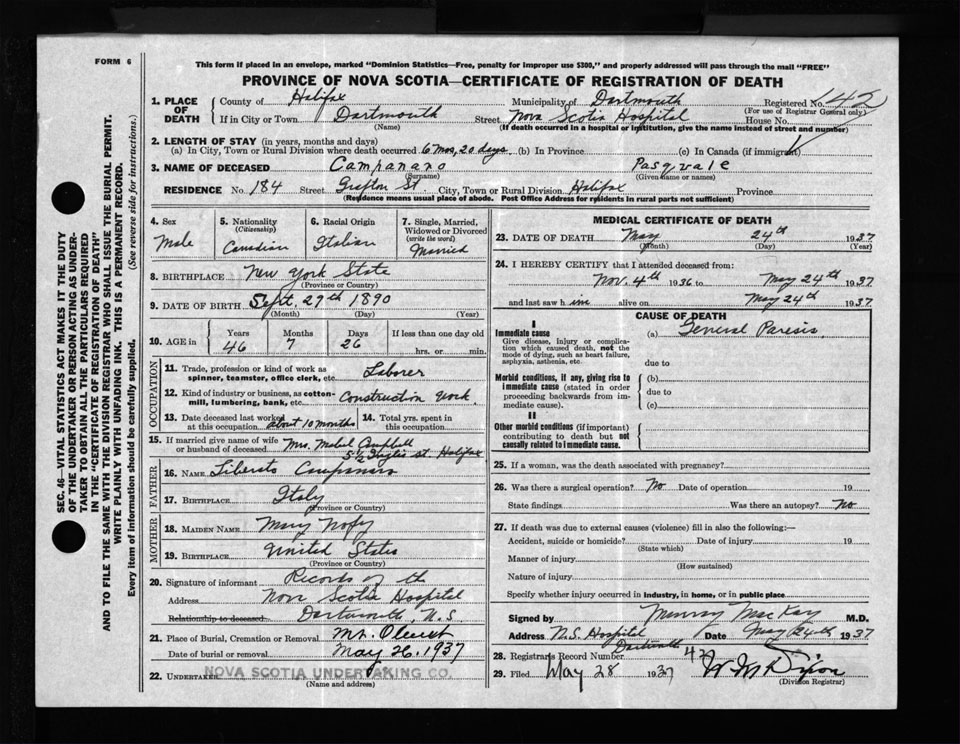 FORM 6
This form if placed in an envelope, marked "Dominion Statistics—Free, penalty for improper use $300," and properly addressed will pass through the mail "FREE"
PROVINCE OF NOVA SCOTIA—CERTIFICATE OF REGISTRATION OF DEATH
1. PLACE OF DEATH
County of Halifax Municipality of Dartmouth Registered No.
(For use of Registrar General only)
If in City or Town Dartmouth Street Nova Scotia Hospital House No.
(Name) (If death occurred in a hospital or institution, give the name instead of street and number)
2. LENGTH OF STAY (in years, months and days)
(a) In City, Town or Rural Division where death occurred 6 mos, 20 days. (b) In Province (c) In Canada (if immigrant)
3. NAME OF DECEASED Campanano Pasquale
(Surname) (Given name or names)
RESIDENCE No. 184 Street Grafton St. City, Town or Rural Division Halifax Province
(Residence means usual place of abode. Post Office Address for residents in rural parts not sufficient)
4. Sex Male
5. Nationality (Citizenship) Canadian
6. Racial Origin Italian
7. Single, Married, Widowed or Divorced (write the word) Married
8. BIRTHPLACE New York State
(Province or Country)
9. DATE OF BIRTH Sept. 29th 1890
(Month) (Day) (Year)
10. AGE in Years 46 Months 7 Days 26 If less than one day old hrs. or min.
OCCUPATION
11. Trade, profession or kind of work as spinner, teamster, office clerk, etc. Laborer
12. Kind of industry or business, as cotton-mill, lumbering, bank, etc. Construction work
13. Date deceased last worked at this occupation about 10 months
14. Total yrs. spent in this occupation
15. If married give name of wife or husband of deceased Mrs. Mabel Campbell
St Halifax
FATHER
16. NAME Liberato Campanano
17. BIRTHPLACE Italy
(Province or Country)
MOTHER
18. MAIDEN NAME Mary
19. BIRTHPLACE United States
(Province or Country)
20. Signature of informant Records of the
Address Nova Scotia Hospital
Relationship to deceased Dartmouth, N.S.
21. Place of Burial, Cremation or Removal Mt. Olivet
Date of burial or removal May 26, 1937
22. UNDERTAKER NOVA SCOTIA UNDERTAKING CO.
(Name and address)
MEDICAL CERTIFICATE OF DEATH
23. DATE OF DEATH May 24th 1937
(Month) (Day) (Year)
24. I HEREBY CERTIFY that I attended deceased from:
Nov. 4th 1936 to May 24th 1937
and last saw him alive on May 24th 1937.
CAUSE OF DEATH
I
Immediate cause
Give disease, injury or complication which caused death, not the mode of dying, such as heart failure, asphyxia, asthenia, etc.
(a) General Paresis
due to
Morbid conditions, if any, giving rise to immediate cause (stated in order proceeding backwards from immediate cause).
(b)
due to
(c)
II
Other morbid conditions (if important) contributing to death but not causally related to immediate cause.
25. If a woman, was the death associated with pregnancy?
26. Was there a surgical operation? No Date of operation 19
State findings Was there an autopsy? No
27. If death was due to external causes (violence) fill in also the following:—
Accident, suicide or homicide? Date of injury 19
(State which)
Manner of injury
(How sustained)
Nature of injury
Specify whether injury occurred in industry, in home, or in public place
Signed by Murray MacKay M.D.
Address N.S. Hospital Dartmouth Date May 24th 1937
28. Registrar's Record Number
29. Filed May 28 1937
(Division Registrar)
SEC. 46—VITAL STATISTICS ACT MAKES IT THE DUTY
OF THE UNDERTAKER OR PERSON ACTING AS UNDER-
TAKER TO OBTAIN ALL THE PARTICULARS REQUIRED
IN THE "CERTIFICATE OF REGISTRATION OF DEATH"
AND TO FILE THE SAME WITH THE DIVISION REGISTRAR WHO SHALL ISSUE THE BURIAL PERMIT.
WRITE PLAINLY WITH UNFADING INK. THIS IS A PERMANENT RECORD.
Every item of information should be carefully supplied. (See reverse side for instructions.)